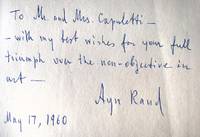 To Mr. and Mrs. Capuletti —
– with my best wishes for your full
triumph over the non-objective in
art —
Ayn Rand
May 17, 1960